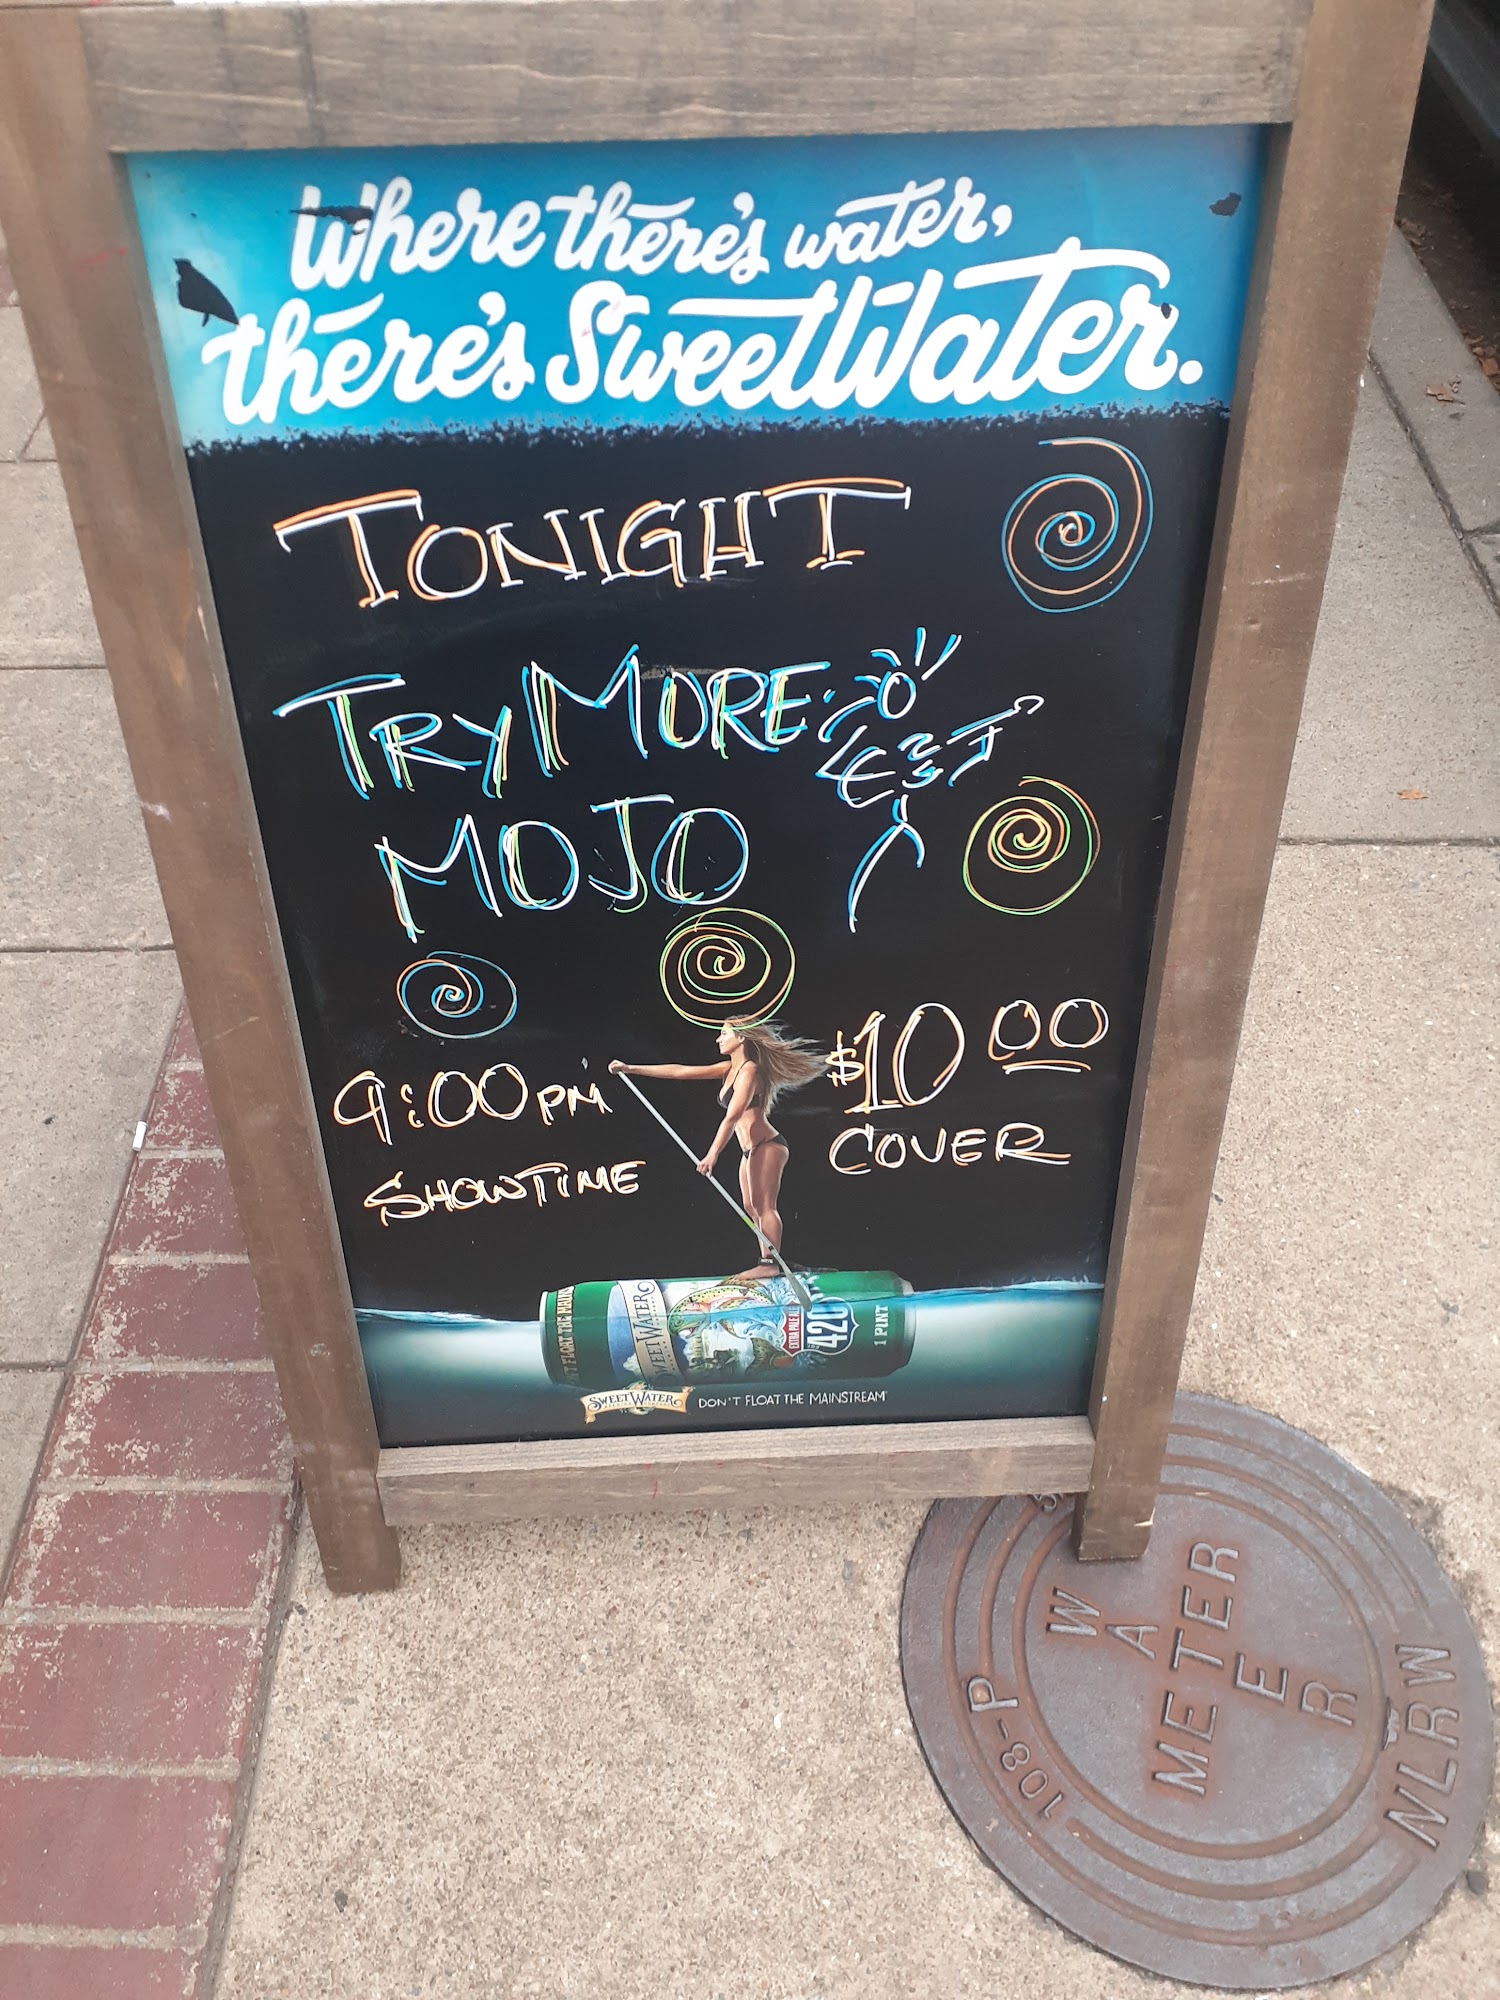 Where there's water,
there's SweetWater.
TONIGHT
TRY MORE
MOJO
9:00 PM
SHOWTIME
$10 00
COVER
SWEETWATER
EXTRA PALE ALE
420
1 PINT
SWEETWATER
DON'T FLOAT THE MAINSTREAM
WATER
METER
108-P
NLRW